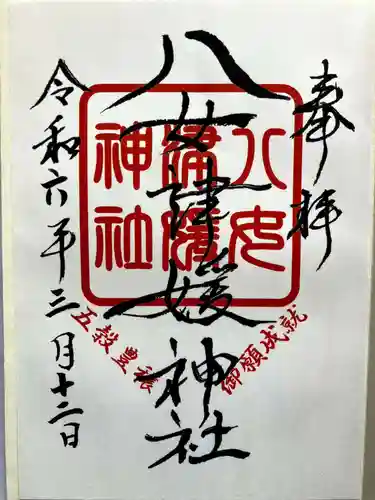 奉拝
八女津媛神社
令和六年三月十二日
八女
津媛
神社
御願成就
五穀豊穣